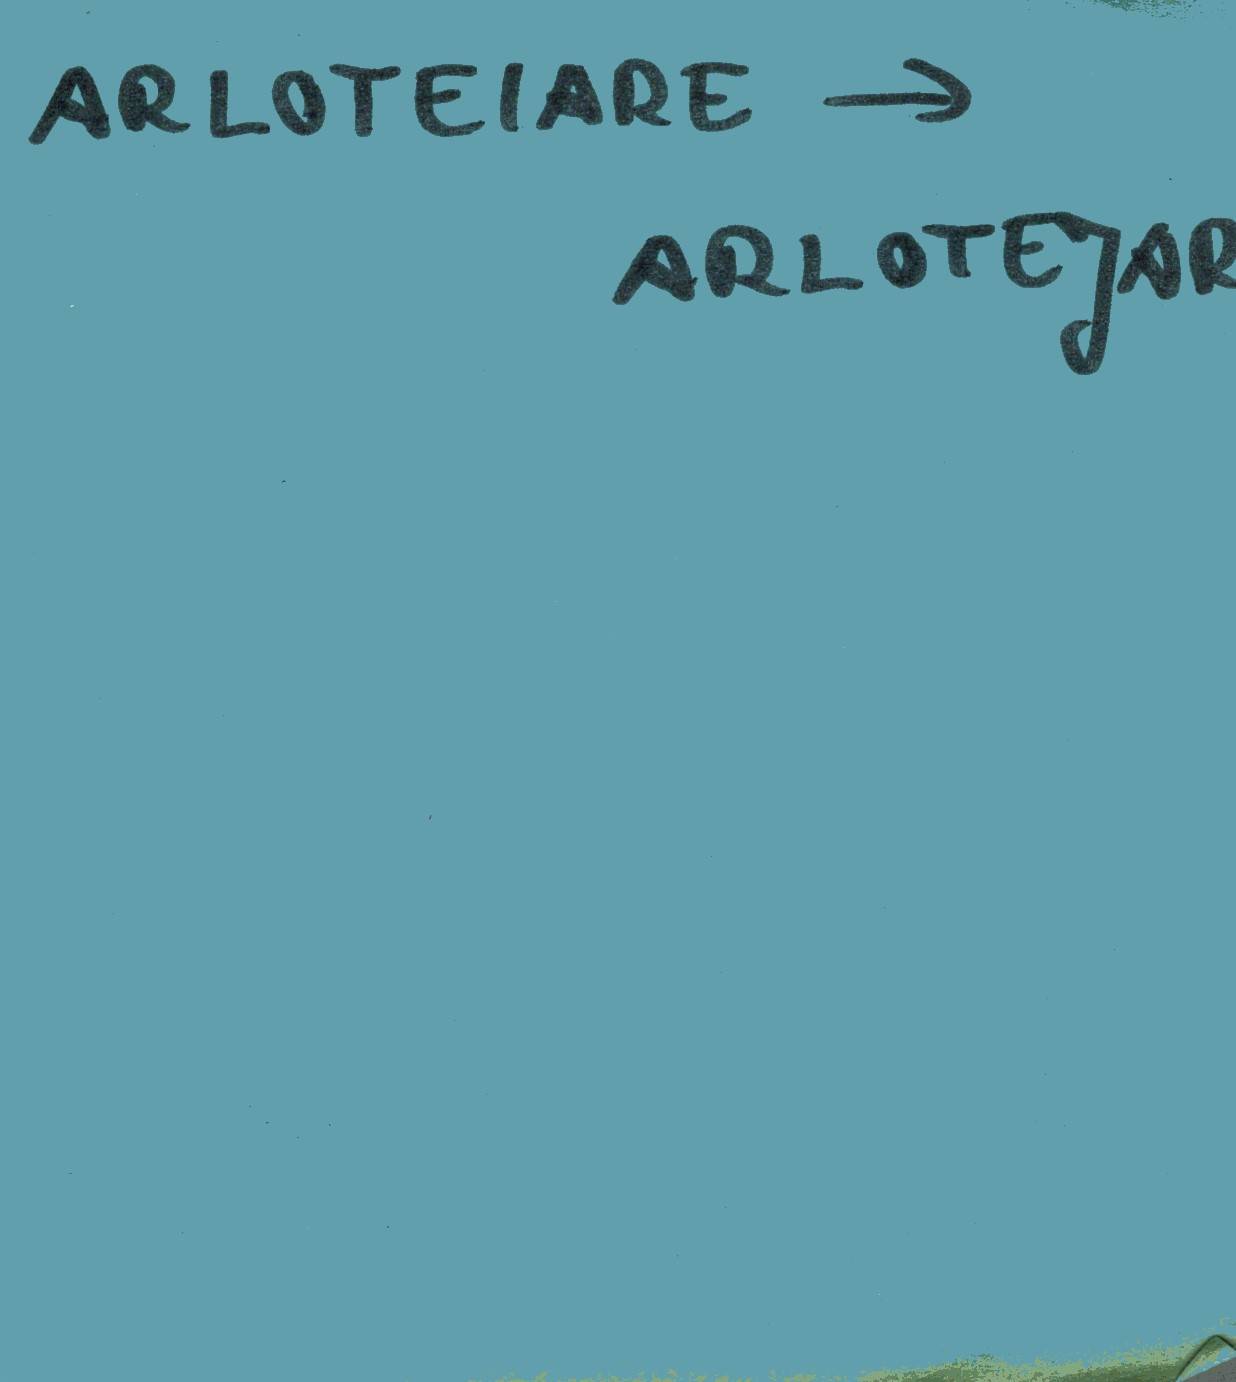 ARLOTEIARE →
ARLOTEJAR